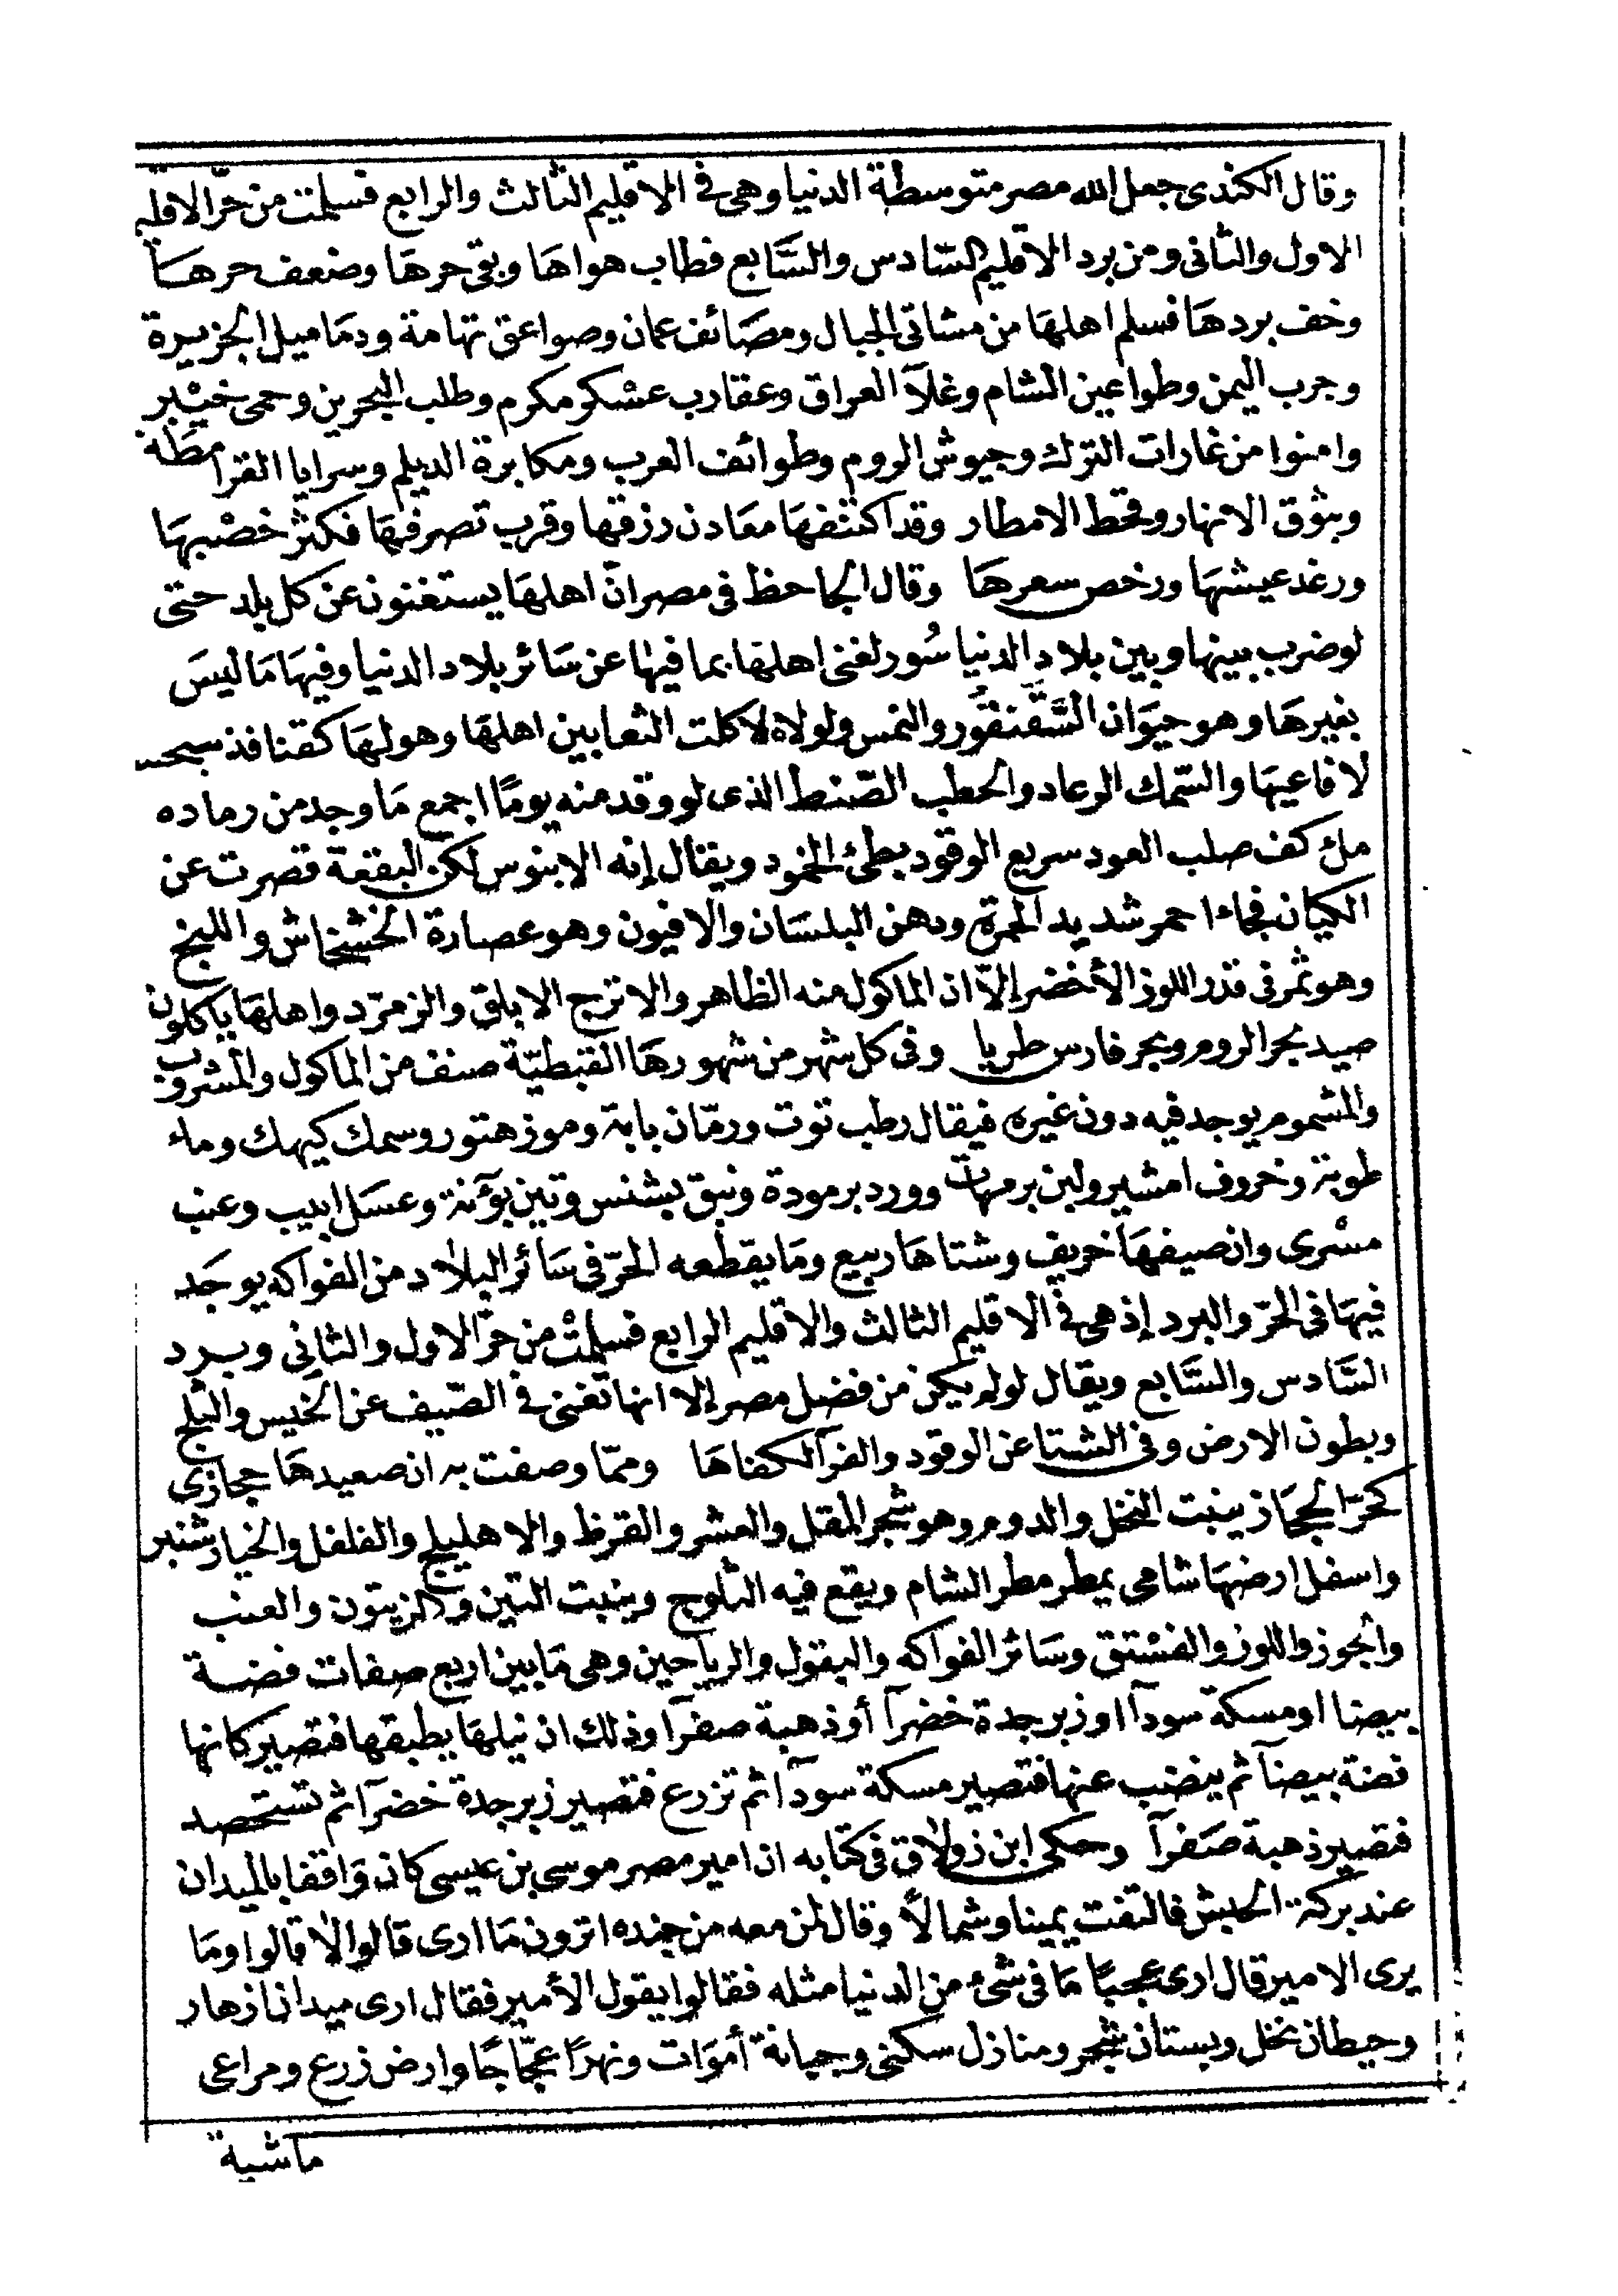 وقال الكندى جعل الله مصر متوسطة الدنيا وهى فى الاقليم الثالث والرابع فسلمت من حرّ الاقليم
الاول والثانى ومن برد الاقليم السّادس والسّابع فطاب هواها وبقى حرها وضعف حرهـا
وخف بردها فسلم اهلها من مشاتى الجبال ومصائف عمان وصواعق تهامة ودماميل الجزيرة
وجرب اليمن وطواعين الشام وغلآ العراق وعقارب عسْكر مكرم وطلب البحرين وحمى خيبر
وامنوا من غارات الترك وجيوش الروم وطوائف العرب ومكابرة الديلم وسرايا القرامطة
وبثوق الانهار وقحط الامطار وقد اكتنفها معادن رزقها وقرب تصرفها فكثر خصْبها
ورغد عيشها ورخص سعرها وقال الجاحظ فى مصر انّ اهلها يستغنون عن كل بلد حتى
لو ضرب بينها وبين بلاد الدنيا سُور لغنى اهلها بما فيها عن سائر بلاد الدنيا وفيها ما ليس
بغيرها وهو حيوان السَّقَنقُور والنمس ولولاه لاكلت الثعابين اهلها وهو لها كقنافذ سجس
لافاعيها والسّمك الرعاد والحطب الصّنط الذى لو وقد منه يومًا اجمع ما وجد من رماده
ملئ كف صلب العود سريع الوقود بطئ الخمود ويقال إنه الابنوس لكن البقعة قصرت عن
الكيان فجاء احمر شديد الحمرة ودهن البلسان والافيون وهو عصارة الخشخاش واللبخ
وهو ثمر فى قدر اللوز الأخضر إلّا ان الماكول منه الظاهر والاترج الابلق والزمرّد واهلها ياكلون
صيد بحر الروم وبحر فارس طريا وفى كل شهر من شهورها القبطيّة صنف من الماكول والمشروب
والمشموم يوجد فيه دون غيره فيقال رطب توت ورمّان بابة وموز هتور وسمك كيهك وماء
طوبة وخروف امشير ولبن برمهات وورد برمودة ونبق بشنس وتين بوَٓنة وعسل ابيب وعنب
مسْرى وان صيفها خريف وشتاها ربيع وما يقطعه الحرّ فى سائر البلاد من الفواكه يوجد
فيها فى الحرّ والبرد إذ هى فى الاقليم الثالث والاقليم الرابع فسلمتْ من حرّ الاول والثانى وبـرد
السّادس والسّابع ويقال لو لم يكن من فضل مصر إلا انها تغنى فى الصّيف عن الخيس والثلج
وبطون الارض وفى الشتا عن الوقود والفرآ لكفاها وممّا وصفت به ان صعيدها حجازى
كحرّ الحجاز ينبت النخل والدوم وهو شجر المقل والعشر والقرظ والاهليلج والفلفل والخيار شنبر
واسفل ارضها شامى يمطر مطر الشام ويقع فيه الثلوج وينبت التين والزيتون والعنب
والجوز واللوز والفسْتق وسائر الفواكه والبقول والرياحين وهى ما بين اربع صفات فضـة
بيضا او مسكة سودآ او زبرجدة خضرآ أو ذهبة صفرآ وذلك ان نيلها يطبقها فتصير كانها
فضة بيضآ ثم ينضب عنها فتصير مسكة سودآ ثم تزرع فتصير زبرجدة خضرآ ثم تستحصد
فتصير ذهبة صفرآ وحكى ابن زولاق فى كتابه ان امير مصر موسى بن عيسى كان واقفا بالميدان
عند بركة الحبش فالتفت يمينا وشمالاً وقال لمن معه من جنده اترون ما ارى قالوا لا قالوا وما
يرى الامير قال ارى عجبًا ما فى شئ من الدنيا مثله فقالوا يقول الأمير فقال ارى ميدان ازهار
وحيطان نخل وبستان شجر ومنازل سكنى وجبانة أموات ونهرًا عجّاجًا وارض زرع ومراعى
ماشية